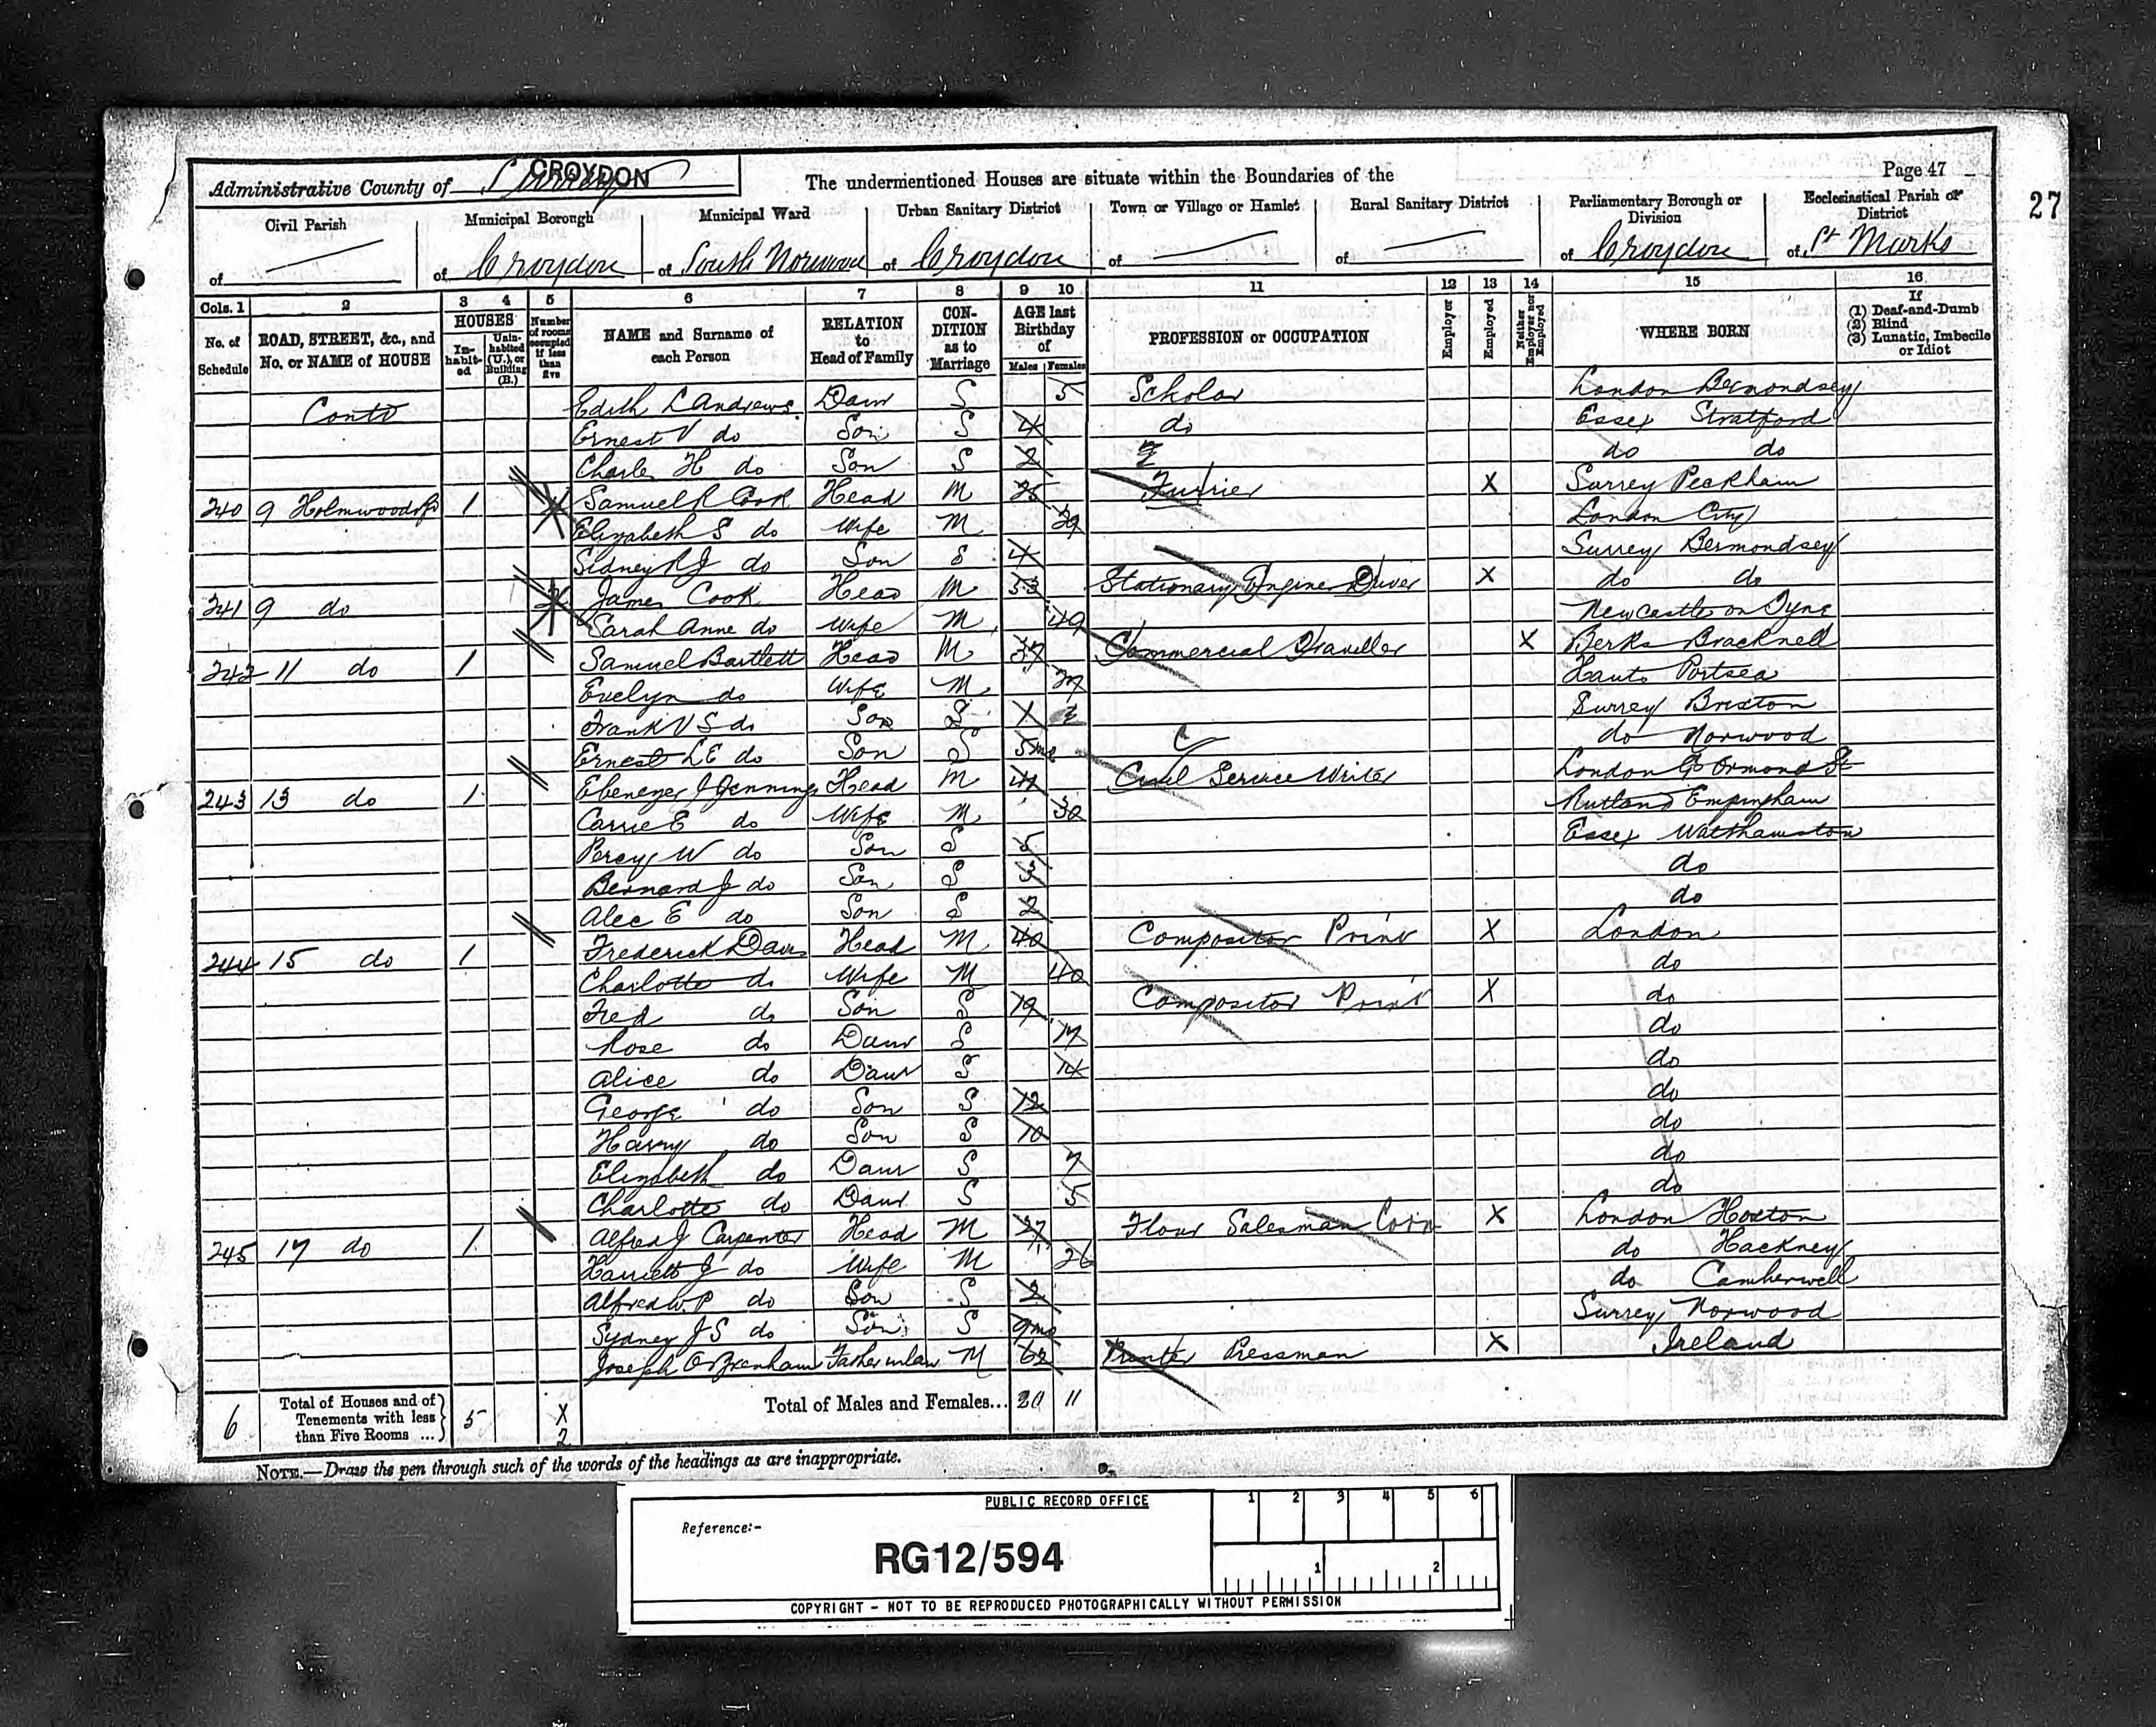 Administrative County of Surrey CROYDON
The undermentioned Houses are situate within the Boundaries of the
Page 47
27
Civil Parish Municipal Borough Municipal Ward Urban Sanitary District Town or Village or Hamlet Rural Sanitary District Parliamentary Borough or Division Ecclesiastical Parish or District
of of Croydon of South Norwood of Croydon of of of Croydon of St Marks
Cols. 1 2 3 4 5 6 7 8 9 10 11 12 13 14 15 16
No. of Schedule ROAD, STREET, &c., and No. or NAME of HOUSE HOUSES Inhabited Uninhabited (U.), or Building (B.) Number of rooms occupied if less than five NAME and Surname of each Person RELATION to Head of Family CONDITION as to Marriage AGE last Birthday of Males Females PROFESSION or OCCUPATION Employer Employed Neither Employer nor Employed WHERE BORN If (1) Deaf-and-Dumb (2) Blind (3) Lunatic, Imbecile or Idiot
Contd Edith L Andrews Daur S 5 Scholar London Bermondsey
Ernest V do Son S 4 do Essex Stratford
Charles H do Son S 2 do do
240 9 Holmwood Rd 1 Samuel R Cook Head M 25 Furrier X Surrey Peckham
Elizabeth S do Wife M 29 London City
Sidney R J do Son S 4 Surrey Bermondsey
241 9 do James Cook Head M 53 Stationary Engine Driver X do do
Sarah Anne do Wife M 49 Newcastle on Tyne
242 11 do 1 Samuel Bartlett Head M 37 Commercial Traveller X Berks Bracknell
Evelyn do Wife M 27 Hants Portsea
Frank V S do Son S 1 Surrey Brixton
Ernest L E do Son S 5mo do Norwood
243 13 do 1 Ebenezer J Jennings Head M 41 Civil Service Writer London Gt Ormond St
Carrie E do Wife M 32 Rutland Empingham
Percy W do Son S 5 Essex Walthamstow
Bernard J do Son S 3 do
Alec E do Son S 2 do
244 15 do 1 Frederick Davis Head M 40 Compositor Print X London
Charlotte do Wife M 40 do
Fred do Son S 19 Compositor Print X do
Rose do Daur S 17 do
Alice do Daur S 14 do
George do Son S 12 do
Harry do Son S 10 do
Elizabeth do Daur S 7 do
Charlotte do Daur S 5 do
245 17 do 1 Alfred J Carpenter Head M 27 Flour Salesman Corn X London Hoxton
Harriett J do Wife M 26 do Hackney
Alfred W. P do Son S 2 do Camberwell
Sydney J S do Son S 9mo Surrey Norwood
Joseph Father inlaw M 62 Printer Pressman X Ireland
6 Total of Houses and of Tenements with less than Five Rooms ... 5 X 2 Total of Males and Females... 20 11
NOTE.—Draw the pen through such of the words of the headings as are inappropriate.
PUBLIC RECORD OFFICE 1 2 3 4 5 6
Reference:-
RG12/594 1 2
COPYRIGHT - NOT TO BE REPRODUCED PHOTOGRAPHICALLY WITHOUT PERMISSION